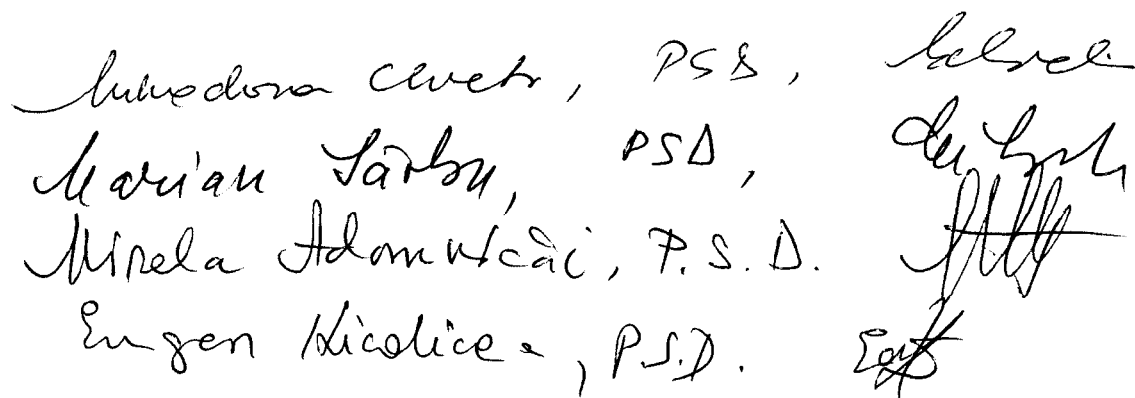 Minodora Cliveti, PSD,
Marian Sârbu, PSD,
Mirela Adomnicăi, P.S.D.
Eugen Nicolicea, P.S.D.